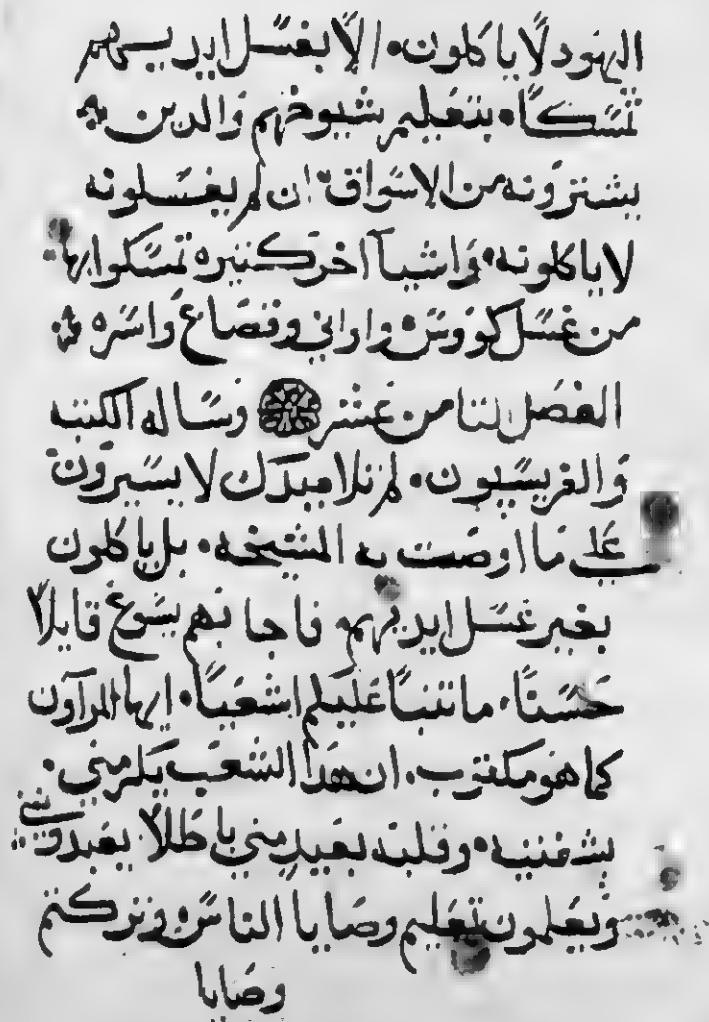 اليهود لا ياكلون. الا بغسل ايديهم
تمسكا. بتعليم شيوخهم والدين
يشترونه من الاسواق. ان لم يغسلونه
لا ياكلونه. واشيا اخر كثيره تمسكوا بها
من غسل كووس. واواني وقصاع واسره
الفصل الثامن عشر وساله الكتبه
والفريسيون. لم تلاميدك لا يسيرون
على ما اوصت به المشيخه. بل ياكلون
بغير غسل ايديهم فاجابهم يسوع قايلا
حسنا. ما تنبا عليكم اشعيا. ايها المراون
كما هو مكتوب. ان هدا الشعب يكرمني.
بشفتيه. وقلبه بعيد مني باطلا يعبدونني
ويعلمون تعليم وصايا الناس. وتركتم
وصايا